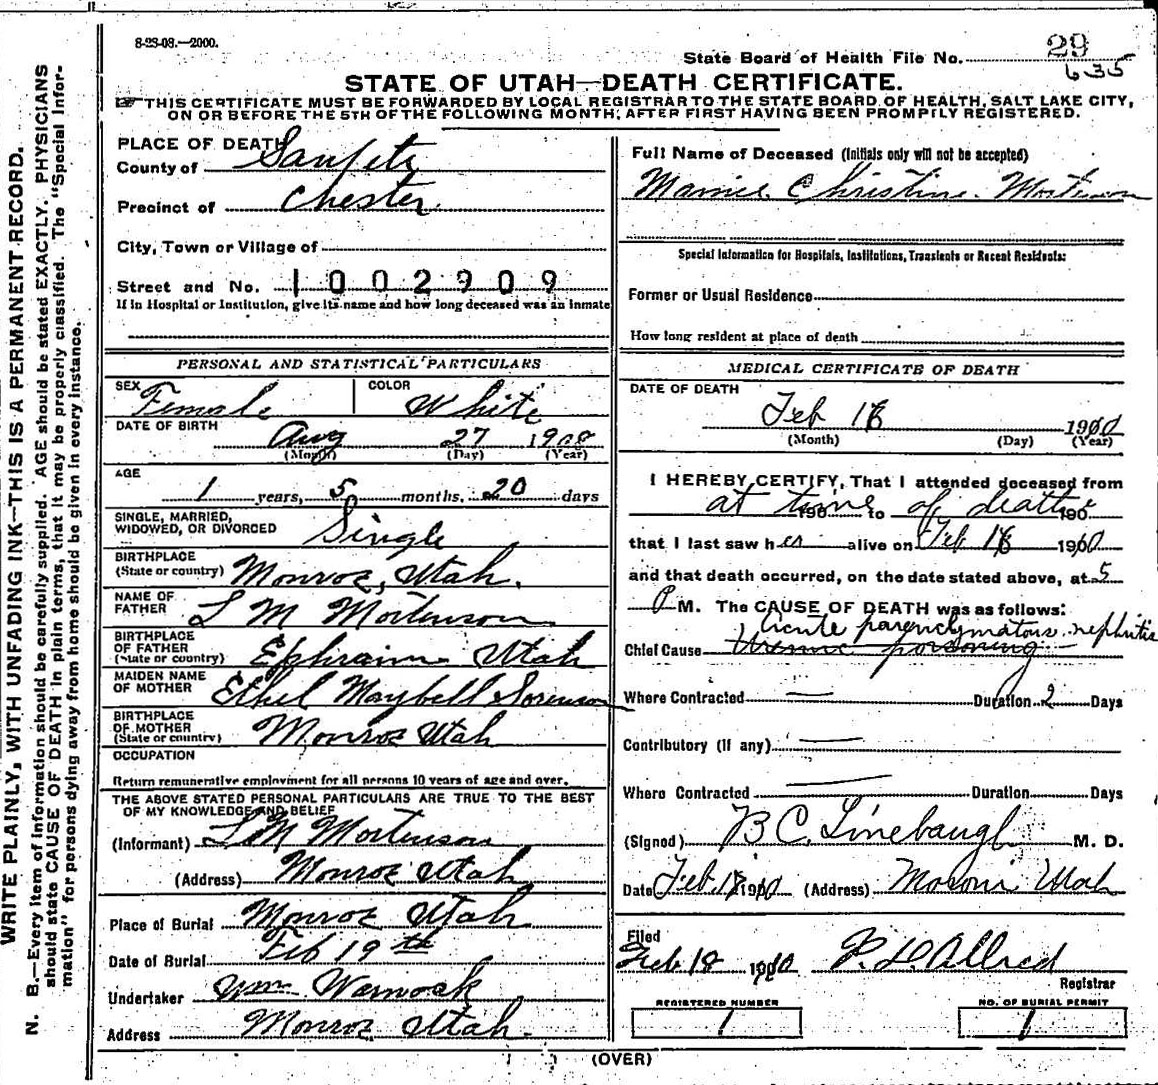 8-23-08.—2000.
State Board of Health File No. 29
635
STATE OF UTAH—DEATH CERTIFICATE.
THIS CERTIFICATE MUST BE FORWARDED BY LOCAL REGISTRAR TO THE STATE BOARD OF HEALTH, SALT LAKE CITY,
ON OR BEFORE THE 5TH OF THE FOLLOWING MONTH, AFTER FIRST HAVING BEEN PROMPTLY REGISTERED.
WRITE PLAINLY, WITH UNFADING INK—THIS IS A PERMANENT RECORD.
N. B.—Every item of information should be carefully supplied. AGE should be stated EXACTLY. PHYSICIANS
should state CAUSE OF DEATH in plain terms, that it may be properly classified. The "Special Infor-
mation" for persons dying away from home should be given in every instance.
PLACE OF DEATH
County of Sanpete
Precinct of Chester
City, Town or Village of
Street and No. 1002909
If in Hospital or Institution, give its name and how long deceased was an inmate
PERSONAL AND STATISTICAL PARTICULARS
SEX Female COLOR White
DATE OF BIRTH Aug 27 1908
(Month) (Day) (Year)
AGE 1 years, 5 months, 20 days
SINGLE, MARRIED,
WIDOWED, OR DIVORCED Single
BIRTHPLACE
(State or country) Monroe, Utah.
NAME OF
FATHER L M Mortenson
BIRTHPLACE
OF FATHER
(State or country) Ephraim Utah
MAIDEN NAME
OF MOTHER Ethel Maybell Sorenson
BIRTHPLACE
OF MOTHER
(State or country) Monroe Utah
OCCUPATION
Return remunerative employment for all persons 10 years of age and over.
THE ABOVE STATED PERSONAL PARTICULARS ARE TRUE TO THE BEST
OF MY KNOWLEDGE AND BELIEF
(Informant) L M Mortenson
(Address) Monroe Utah
Place of Burial Monroe Utah
Date of Burial Feb 19th
Undertaker Wm. Warnock
Address Monroe Utah.
Full Name of Deceased (Initials only will not be accepted)
Christine Mortenson
Special Information for Hospitals, Institutions, Transients or Recent Residents:
Former or Usual Residence
How long resident at place of death
MEDICAL CERTIFICATE OF DEATH
DATE OF DEATH
Feb 16 1910
(Month) (Day) (Year)
I HEREBY CERTIFY, That I attended deceased from
at time 190 to of death 190
that I last saw her alive on Feb 16 1910
and that death occurred, on the date stated above, at 5
P M. The CAUSE OF DEATH was as follows:
Acute parenchymatous nephritis
Chief Cause Uremic poisoning
Where Contracted — Duration 2 Days
Contributory (if any) —
Where Contracted — Duration Days
(Signed) B C Linebaugh M. D.
Date Feb. 1910 (Address) Moroni Utah
Filed
Feb 18 1910 P. L. Allred
Registrar
REGISTERED NUMBER
1
NO. OF BURIAL PERMIT
1
(OVER)